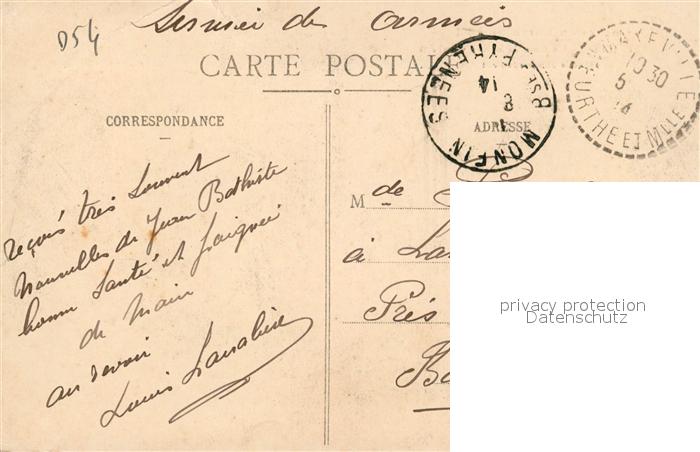 D54
Service des armées
CARTE POSTAL
CORRESPONDANCE
ADRESSE
MONEIN
Bses PYRENEES
8
14
MAXEVILLE
10 30
5
14
MEURTHE ET MLLE
reçois très souvent
nouvelles de Jean Bathiste
bonne Santé et
de Main
au revoir
Louis
Mde
à La
Près
Ba
privacy protection
Datenschutz